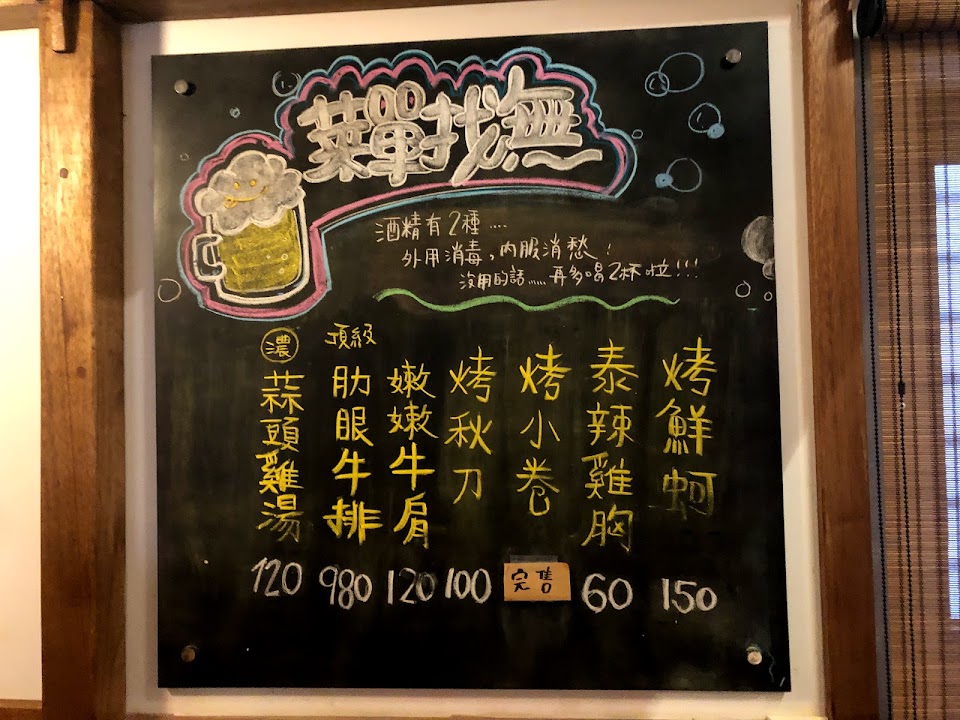 菜單找無
酒精有2種....
外用消毒,內服消愁!
沒用的話.....再多喝2杯啦!!!
烤鮮蚵
150
泰辣雞胸
60
烤小卷
完售
烤秋刀
100
嫩嫩牛肩
120
頂級
肋眼牛排
980
濃
蒜頭雞湯
120